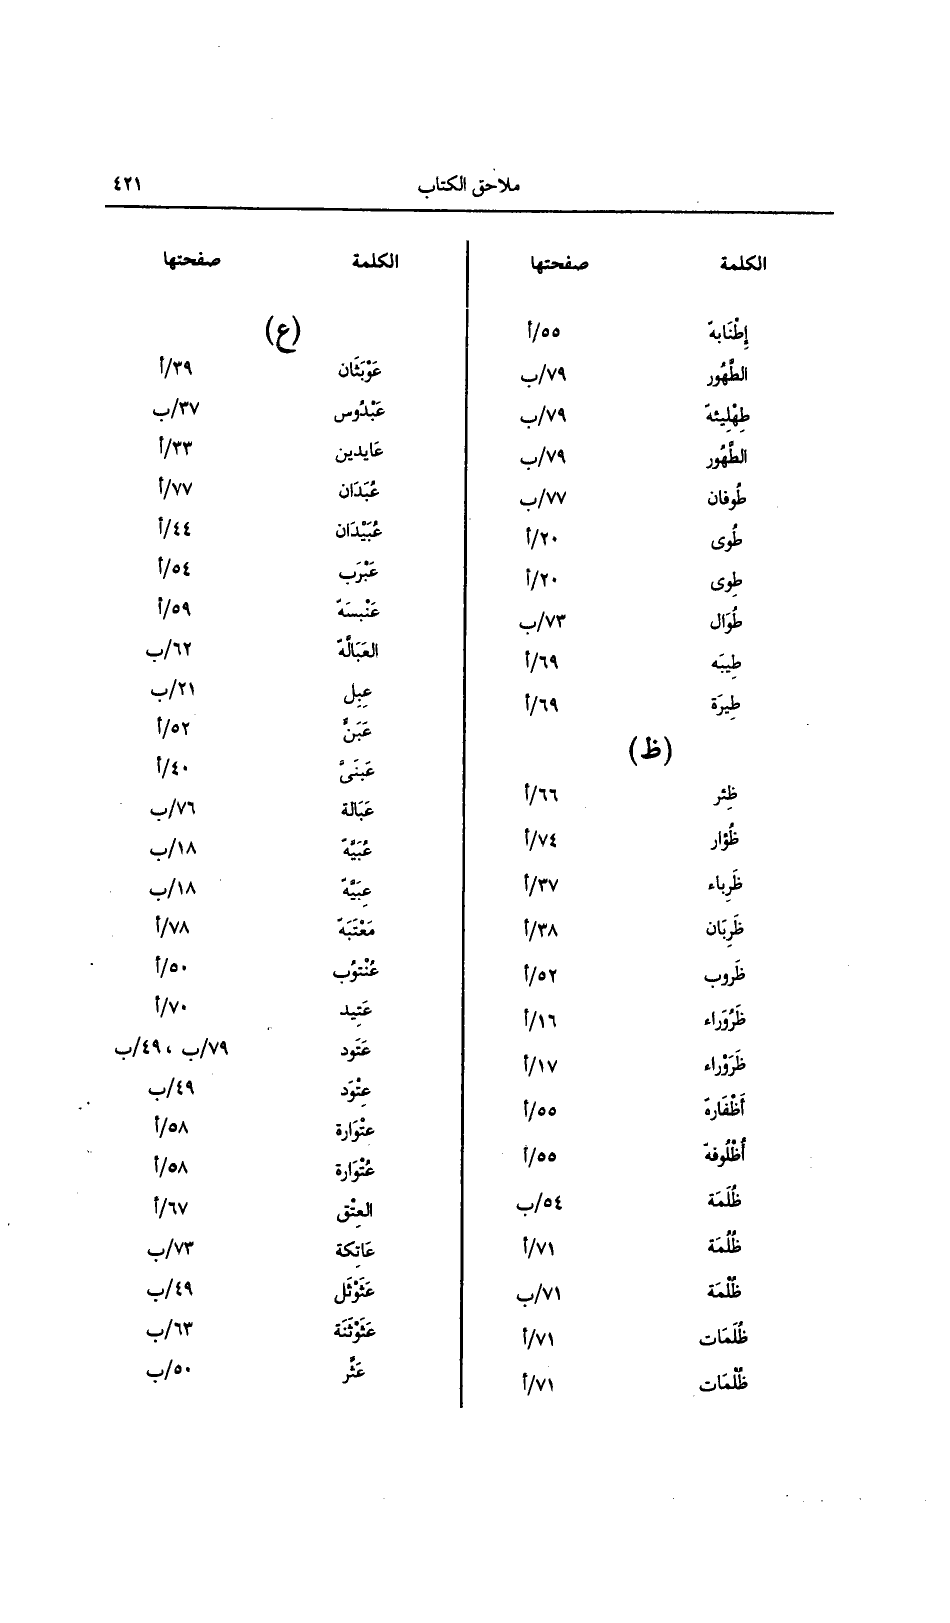 ملاحق الكتاب ٤٢١
الكلمة صفحتها
إِطْنَابة ٥٥/أ
الطَّهُور ٧٩/ب
طِهْلِيئة ٧٩/ب
الطَّهُور ٧٩/ب
طُوفان ٧٧/ب
طُوى ٢٠/أ
طِوى ٢٠/أ
طُوَال ٧٣/ب
طِيبَه ٦٩/أ
طِيرَة ٦٩/أ
(ظ)
ظِئر ٦٦/أ
ظُؤار ٧٤/أ
ظَرِباء ٣٧/أ
ظَرِبَان ٣٨/أ
ظَروب ٥٢/أ
ظَرُوَراء ١٦/أ
ظَرَوْراء ١٧/أ
أَظْفَارة ٥٥/أ
أُظْلُوفة ٥٥/أ
ظُلَمَة ٥٤/ب
ظُلُمَة ٧١/أ
ظُلْمَة ٧١/ب
ظُلَمَات ٧١/أ
ظُلْمَات ٧١/أ
الكلمة صفحتها
(ع)
عَوْبَثَان ٣٩/أ
عَبْدُوس ٣٧/ب
عَابِدين ٣٣/أ
عُبَدَان ٧٧/أ
عُبَيْدَان ٤٤/أ
عَبْرَب ٥٤/أ
عَنْبسَة ٥٩/أ
العَبَالَّة ٦٢/ب
عِبِل ٢١/ب
عَبَنٌّ ٥٢/أ
عَبَنىًّ ٤٠/أ
عَبَالة ٧٦/ب
عُبَيَّة ١٨/ب
عِبَيَّة ١٨/ب
مَعْتَبَة ٧٨/أ
عُنْتوُب ٥٠/أ
عَتِيد ٧٠/أ
عَتَود ٧٩/ب ، ٤٩/ب
عِتْوَد ٤٩/ب
عتْوَارة ٥٨/أ
عُتْوَارة ٥٨/أ
العِتْق ٦٧/أ
عَاتِكة ٧٣/ب
عَثَوْثَل ٤٩/ب
عَثَوْثَنَة ٦٣/ب
عَثَّر ٥٠/ب